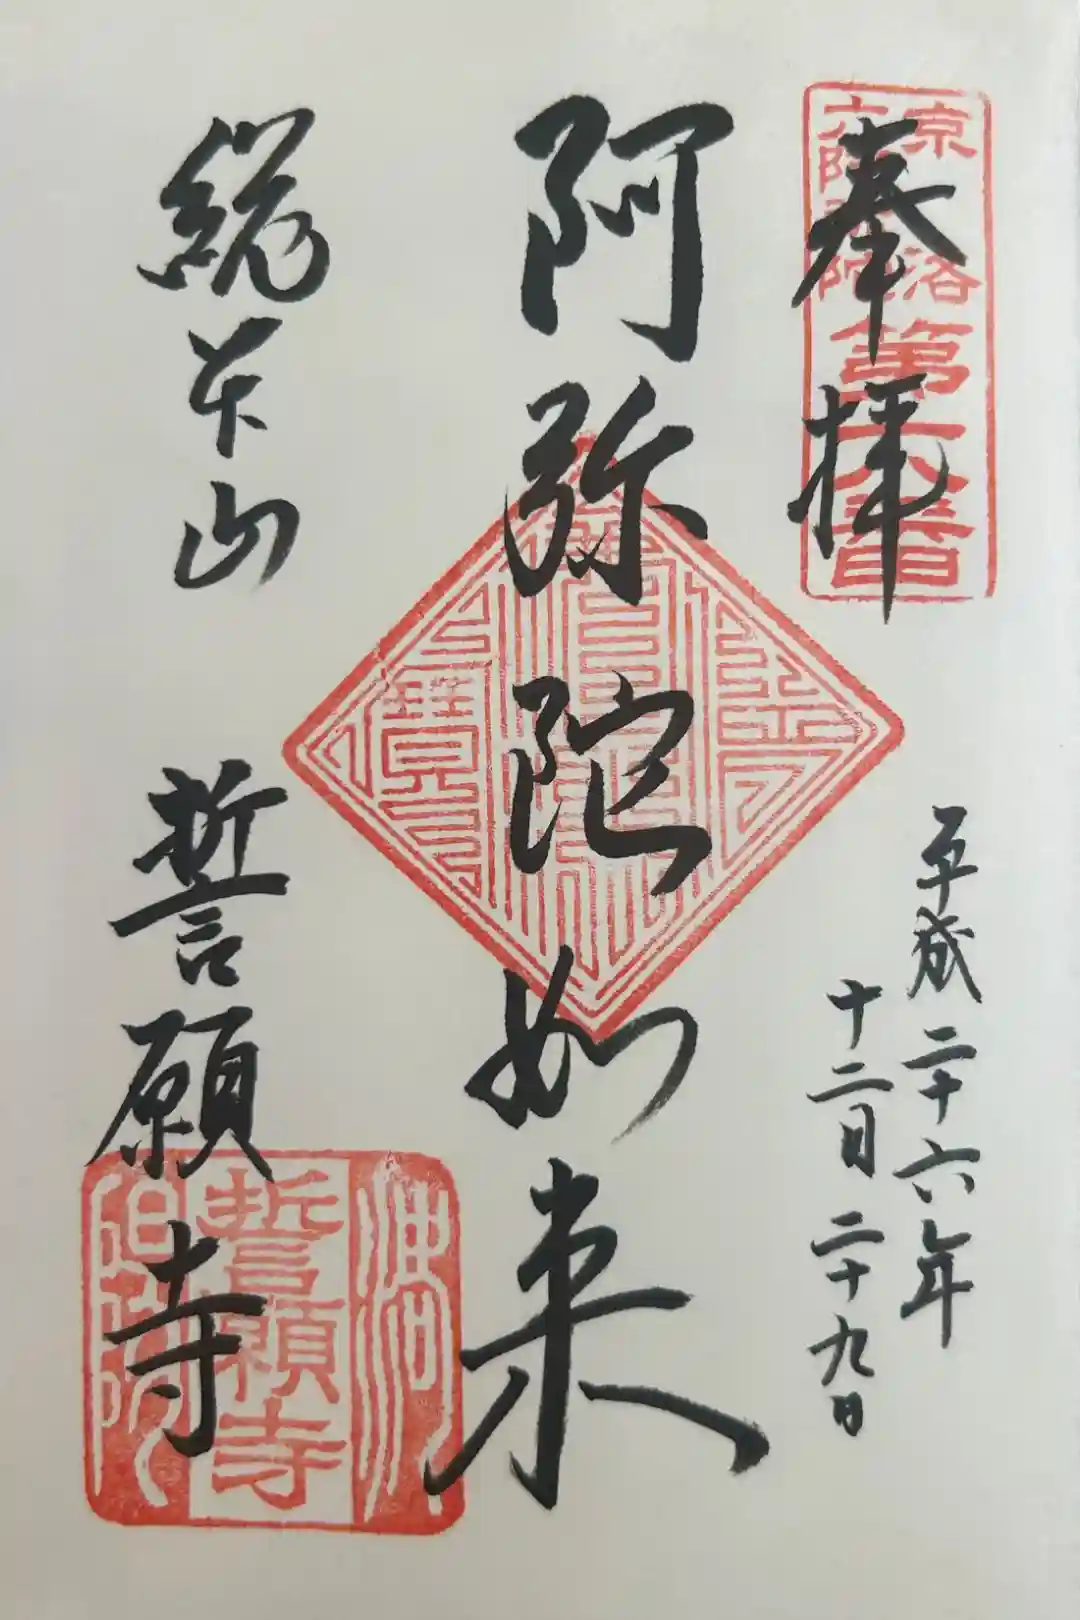 奉拝
京洛
六阿弥陀
第六番
平成二十六年
十二月二十九日
阿弥陀如来
総本山 誓願寺
誓願寺